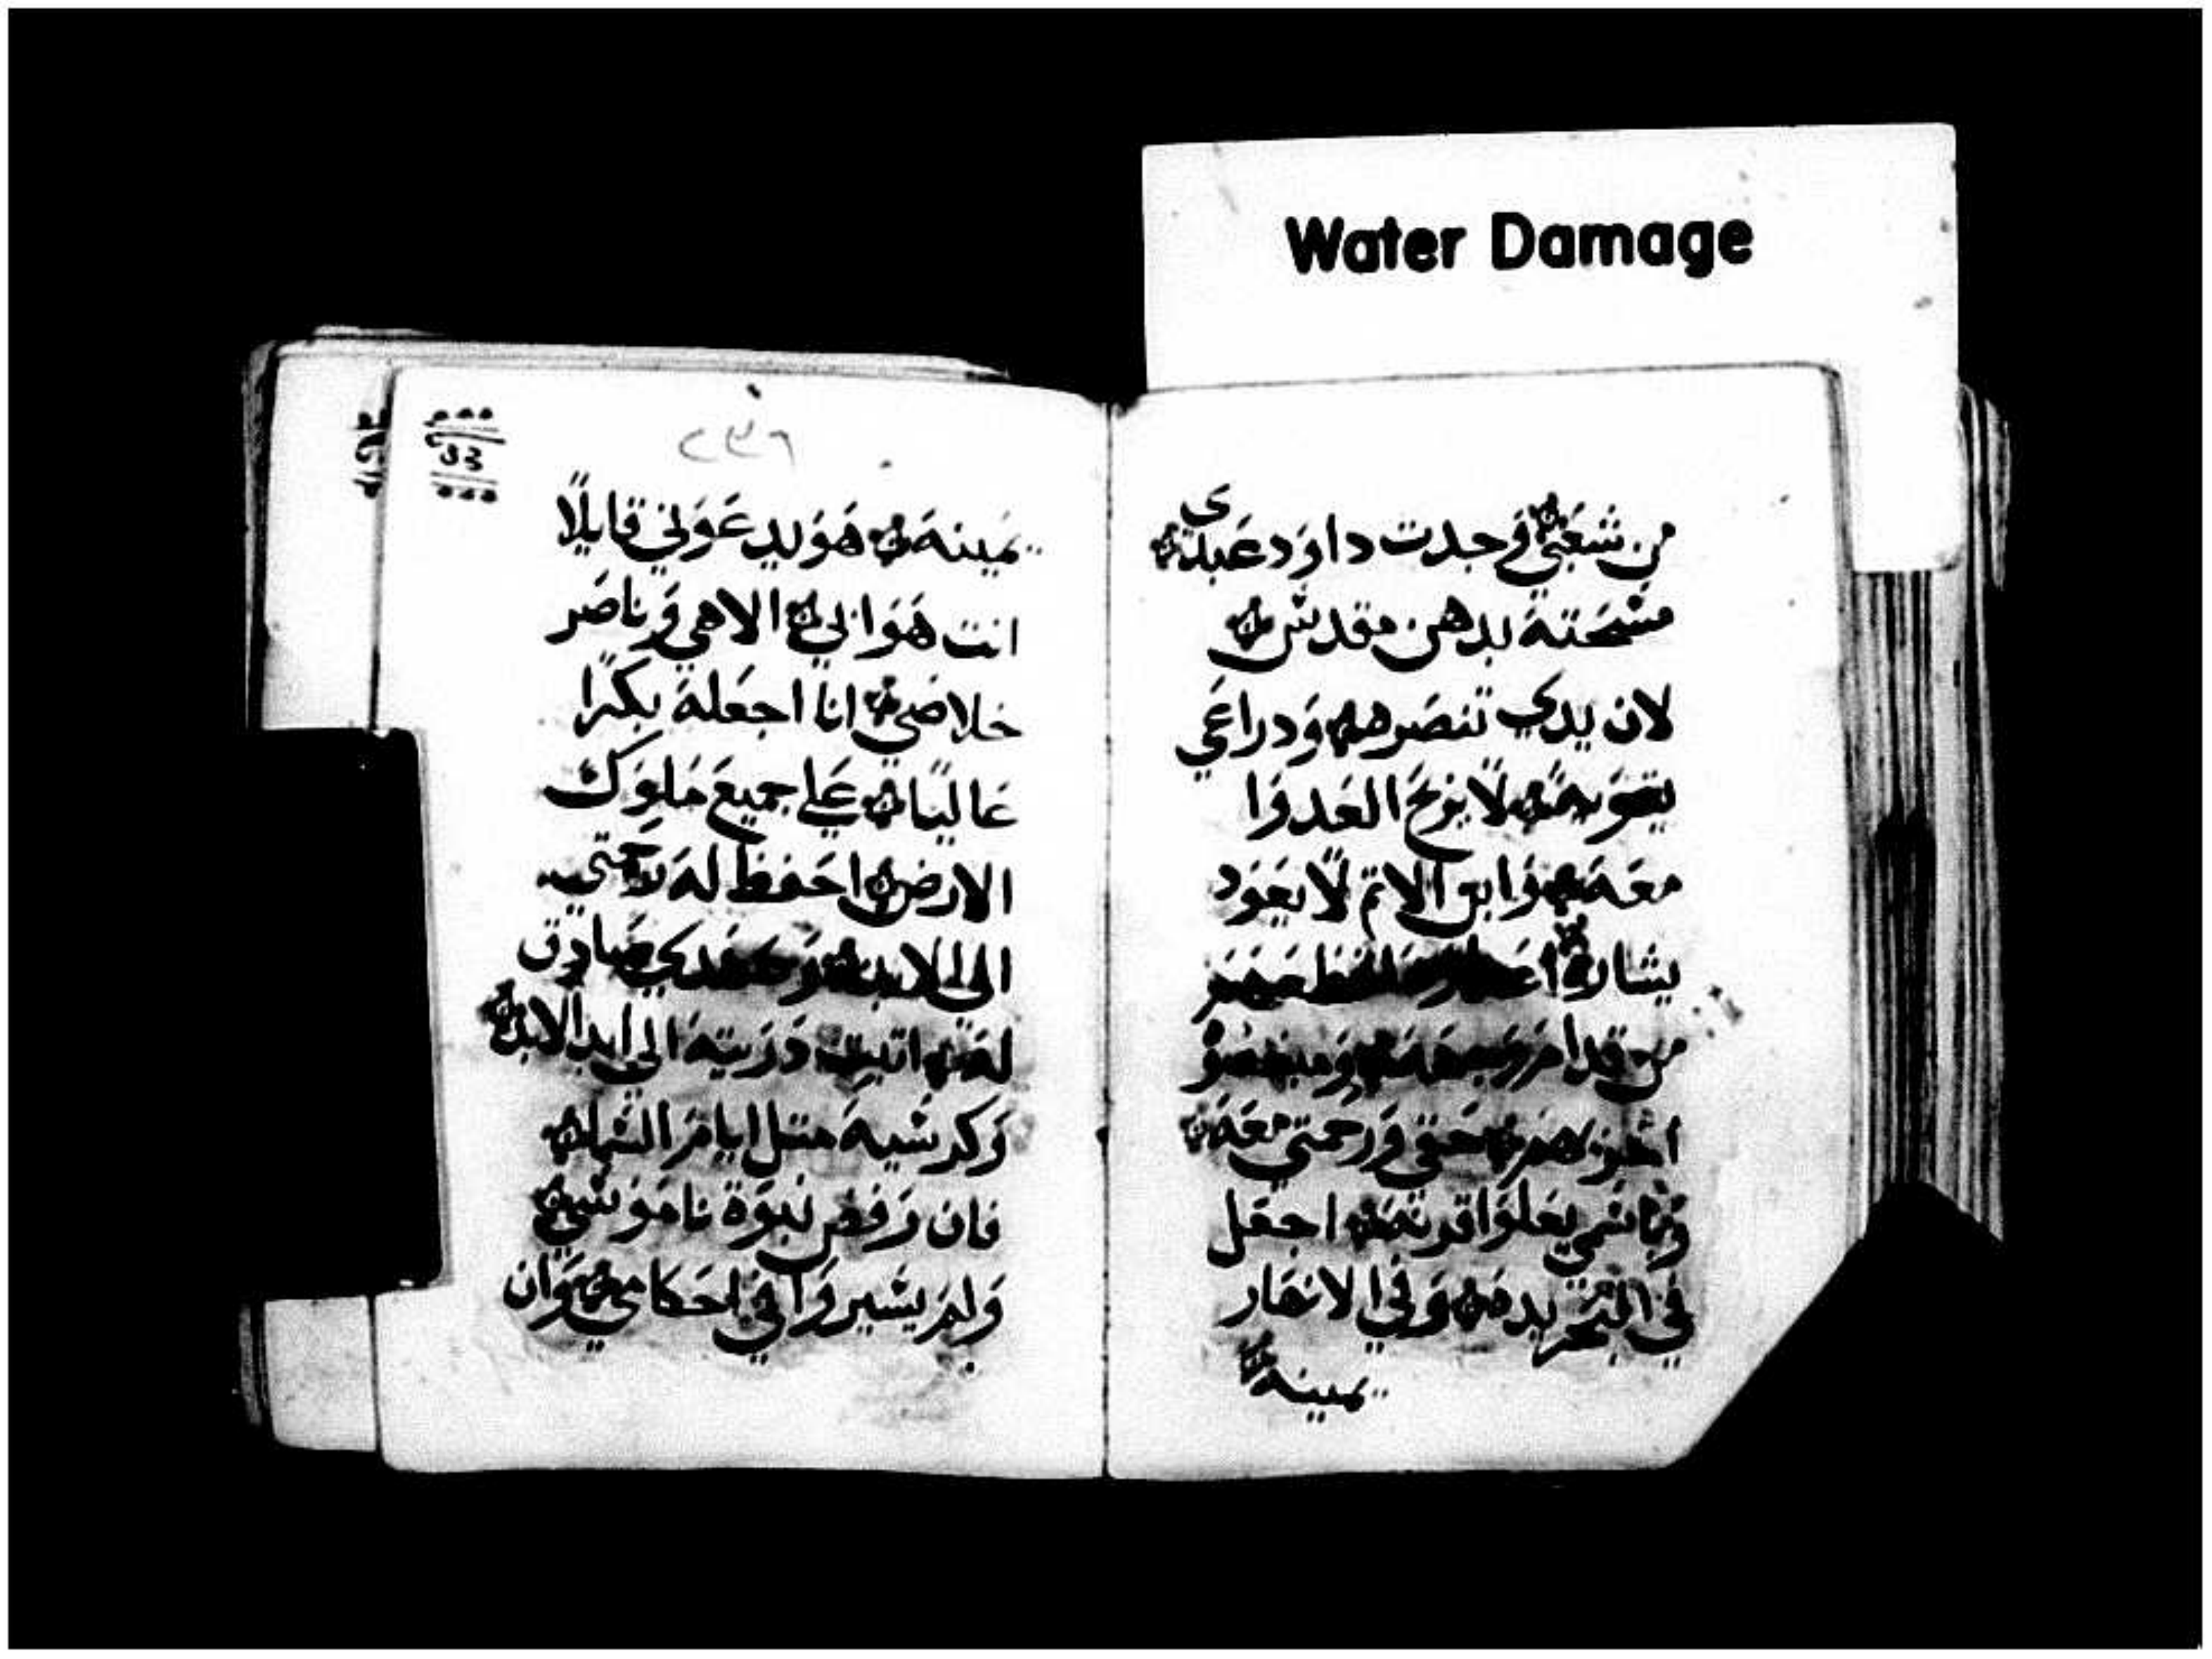 Water Damage
من شعبي وجدت داود عبدى
مسحته بدهن مقدس
لان يدي تنصره ودراعي
يقويه لا يربح العدوا
معه وابن الاتم لا يعود
يشاره
من قدام وجهه
حقي ورحمتي معه
وباسمي يعلوا قرنه اجعل
في البحر يده وفي الانهار
يمينه
٢٣٦
يمينه هو يدعوني قايلا
انت هو ابي الاهي وناصر
خلاصي انا اجعله بكرا
عاليا على جميع ملوك
الارض احفظ له رحمتي
الى الابد وعهدي صادق
له اتبت دريته الى ابد الابد
وكرسيه متل ايام السما
فان رفض نبوه ناموسي
ولم يسيروا في احكامي وان